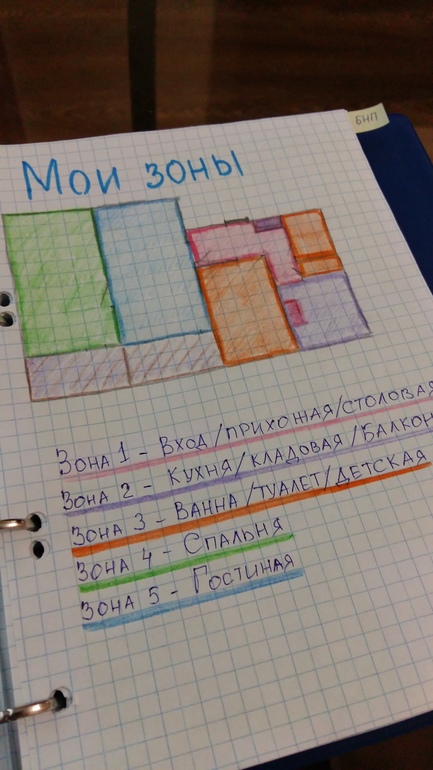 БНП
Мои зоны
Зона 1 - Вход/прихожая/столовая
Зона 2 - Кухня/кладовая/балкон
Зона 3 - Ванна/туалет/детская
Зона 4 - Спальня
Зона 5 - Гостиная